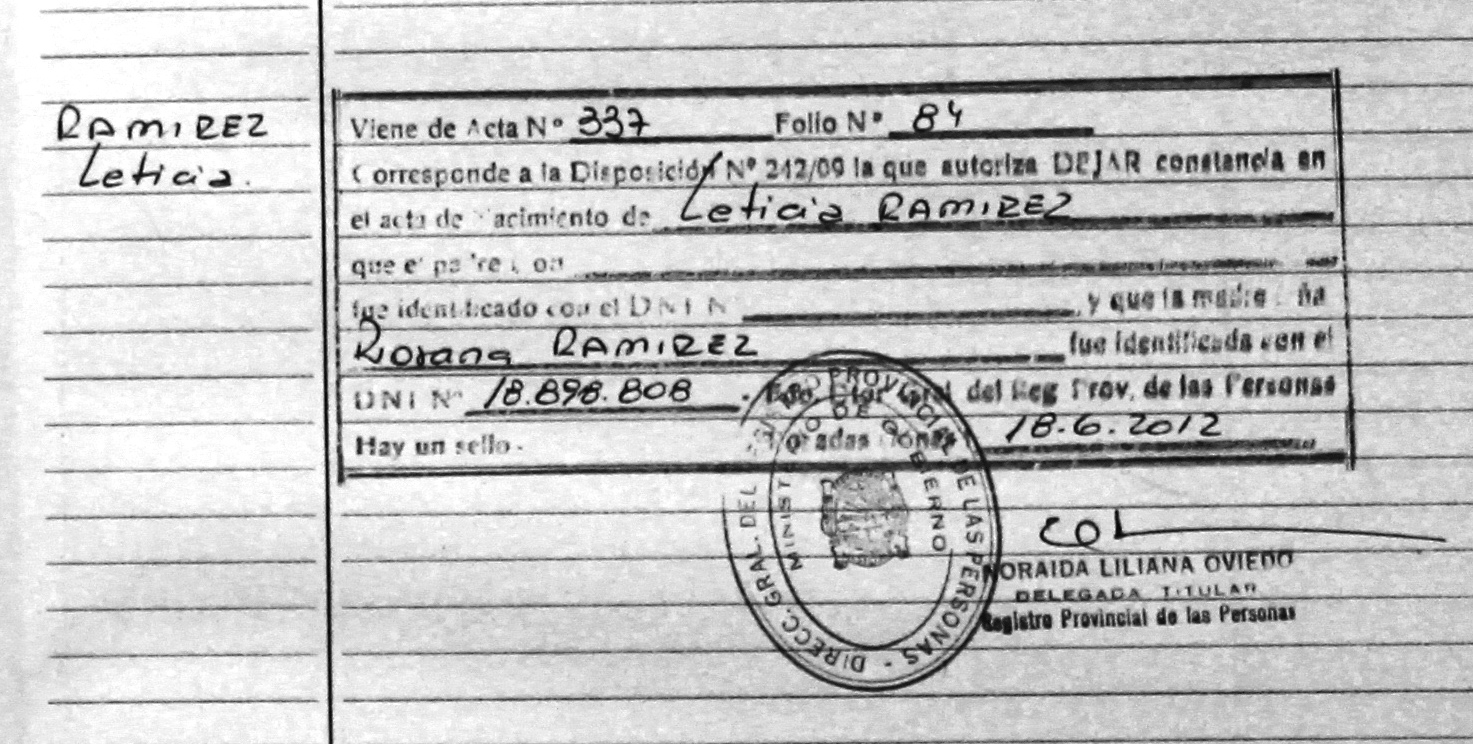 RAMIREZ
Leticia.
Viene de Acta Nº 337 Folio Nº 84
Corresponde a la Disposición Nº 242/09 la que autoriza DEJAR constancia en
el acta de Nacimiento de Leticia RAMIREZ
que el padre Don
fue identificado con el DNI N , y que la madre Doña
Rosana RAMIREZ fue identificada con el
DNI Nº 18.898.808. Fdo. Dtor Gral del Reg Prov. de las Personas
Hay un sello. 18.6.2012
DIRECC. GRAL. DEL PROVINCIAL DE LAS PERSONAS -
MINIST DE GOBIERNO
COL
NORAIDA LILIANA OVIEDO
DELEGADA TITULAR
Registro Provincial de las Personas